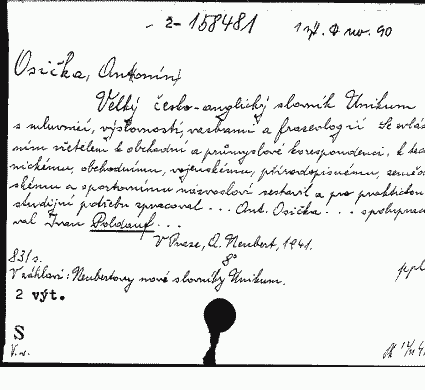 2-158481 1 nov. 90
Osička, Antonín
Velký česko-anglický slovník Unikum
s mluvnicí, výslovností, vazbami a frazeologií Se zvláš
ním zřetelem k obchodní a průmyslové korespondenci, k tec
nickému, obchodnímu, vojenskému, přírodopisnému, země
skému a sportovnímu názvosloví sestavil a pro praktickou
studijní potřebu zpracoval ... Ant. Osička ... spolupraco
val Ivan Poldauf ...
V Praze, A. Neubert, 1941.
831 s. 8°
V záhlaví: Neubertovy nové slovníky Unikum.
2 výt.
S
V.v.